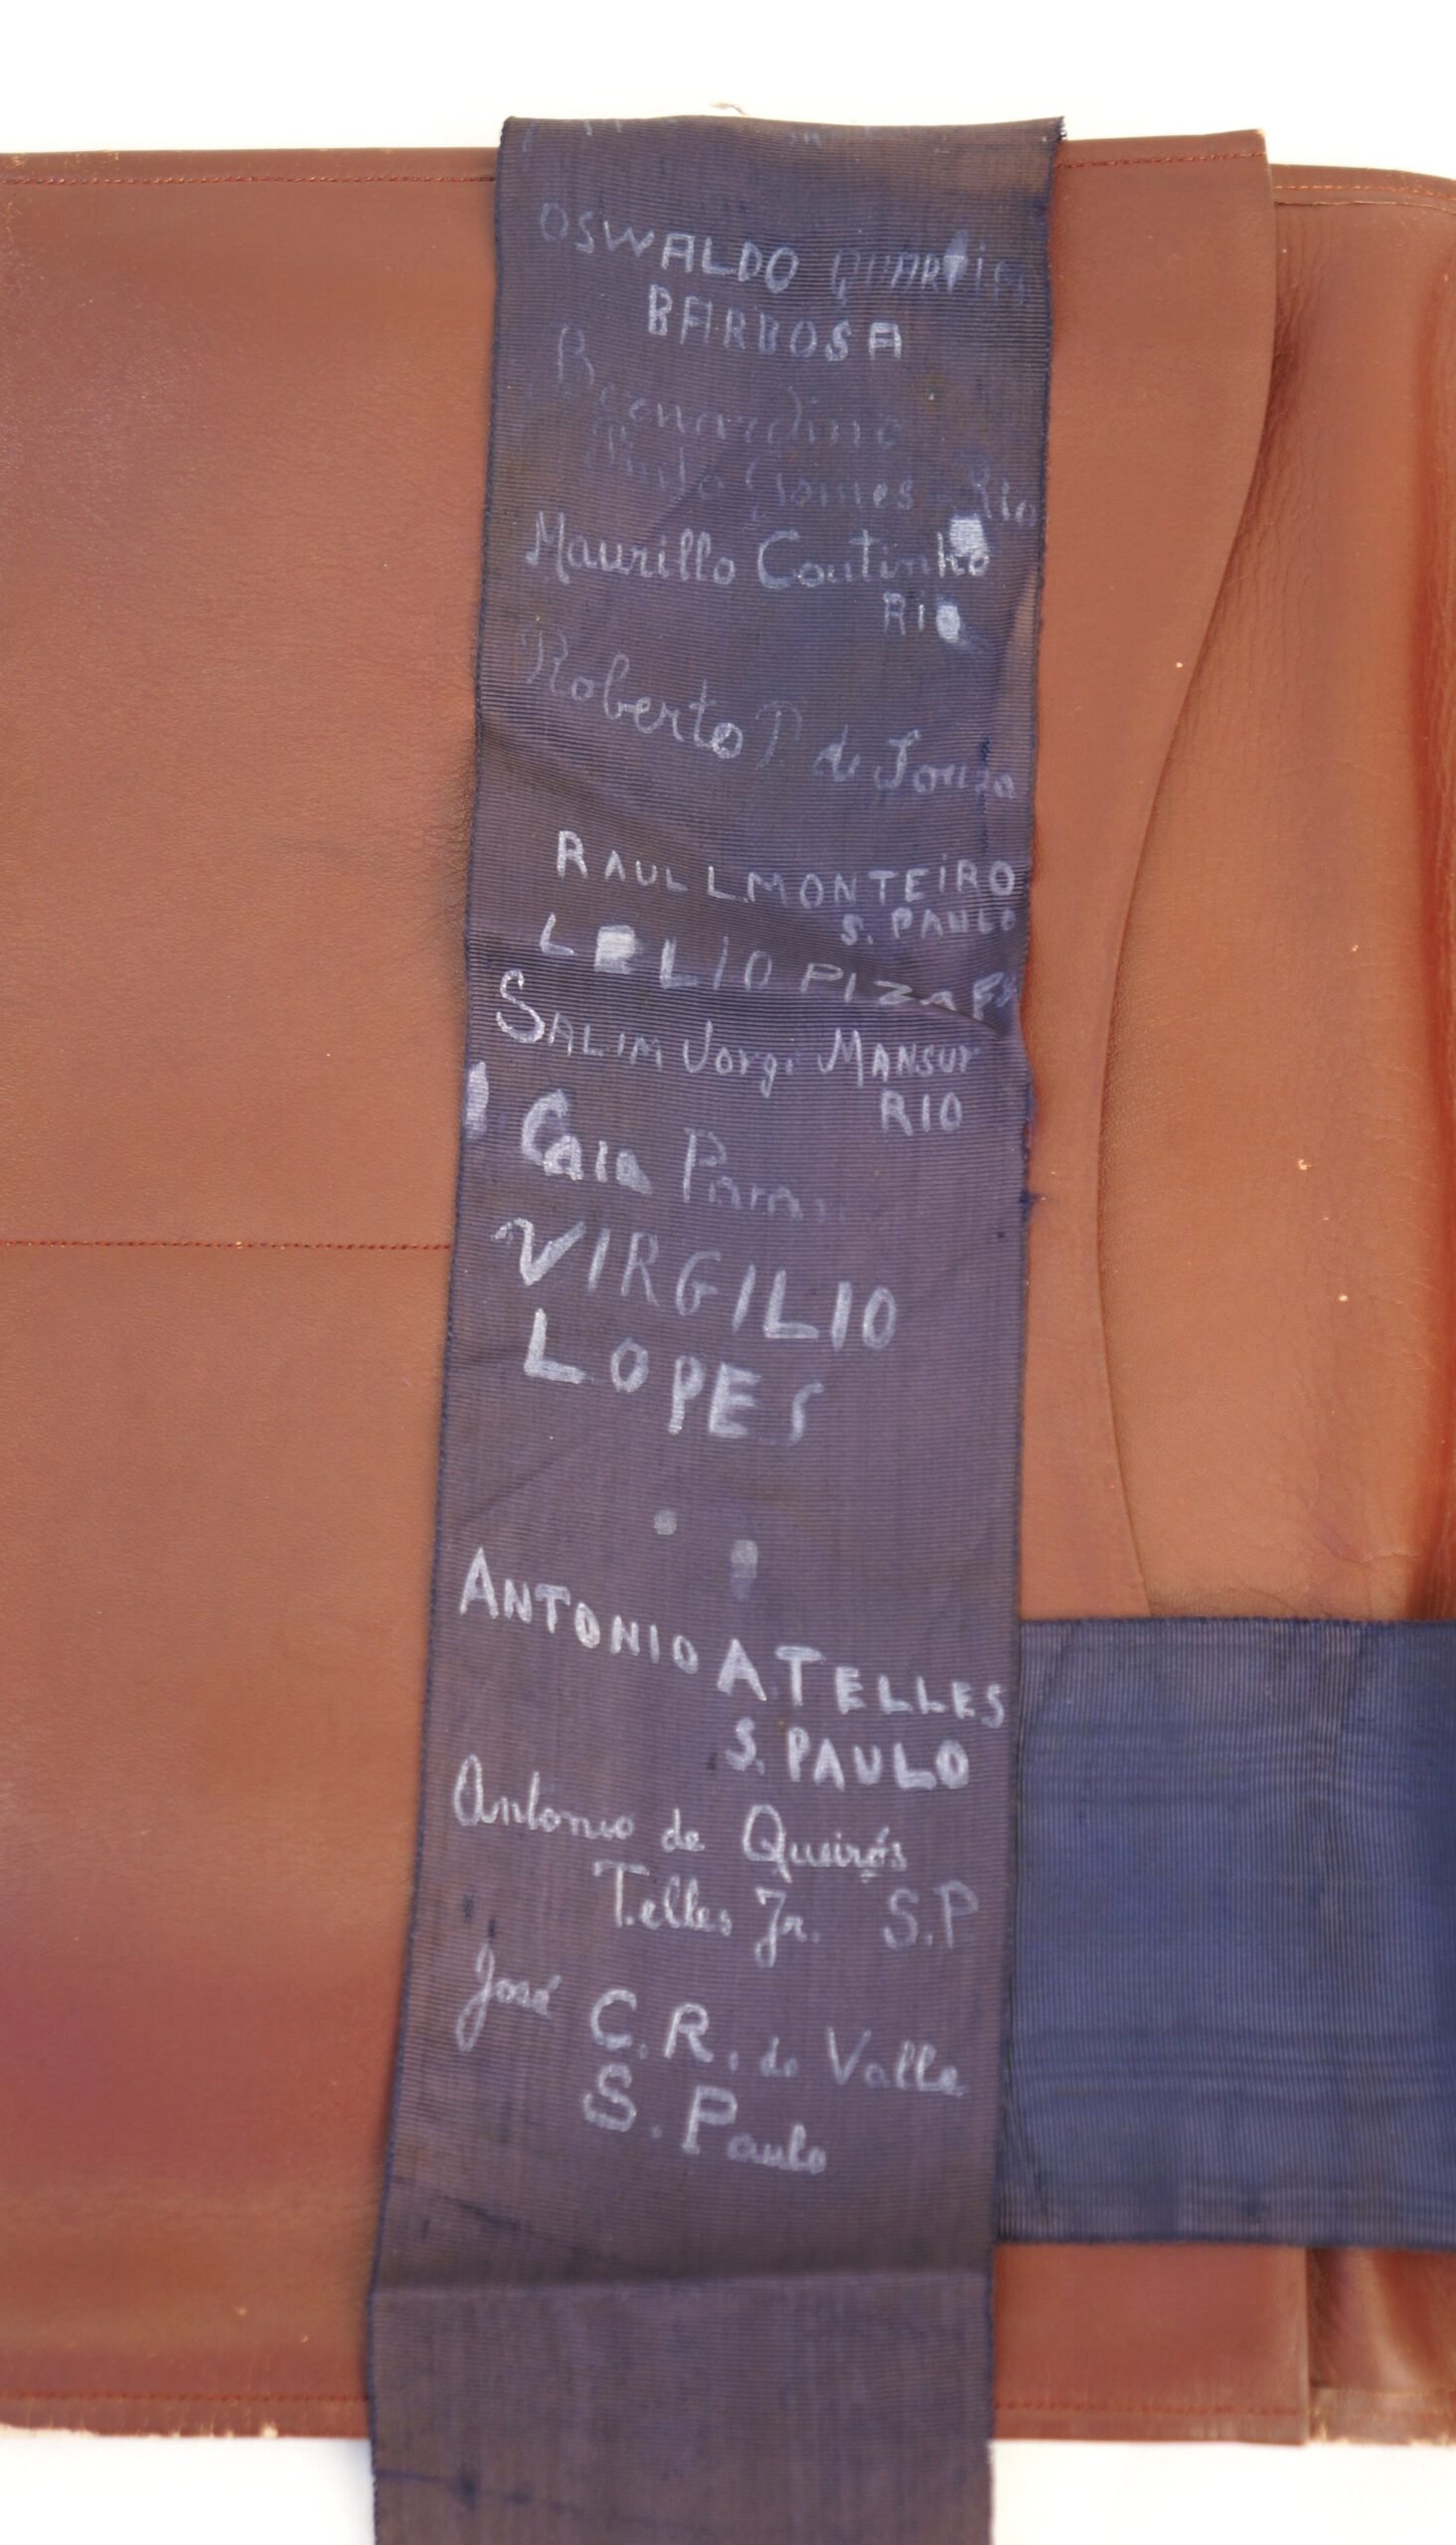 OSWALDO QUARTIM
BARBOSA
Bernardino
Pinto Gomes - Rio
Maurillo Coutinho
RIO
Roberto P. de Souza
RAUL L. MONTEIRO
S. PAULO
LELIO PIZA
SALIM Jorge MANSUR
RIO
VIRGILIO
LOPES
ANTONIO A. TELLES
S. PAULO
Antonio de Queirós
Telles Jr. S.P
José C.R. do Valle
S. Paulo